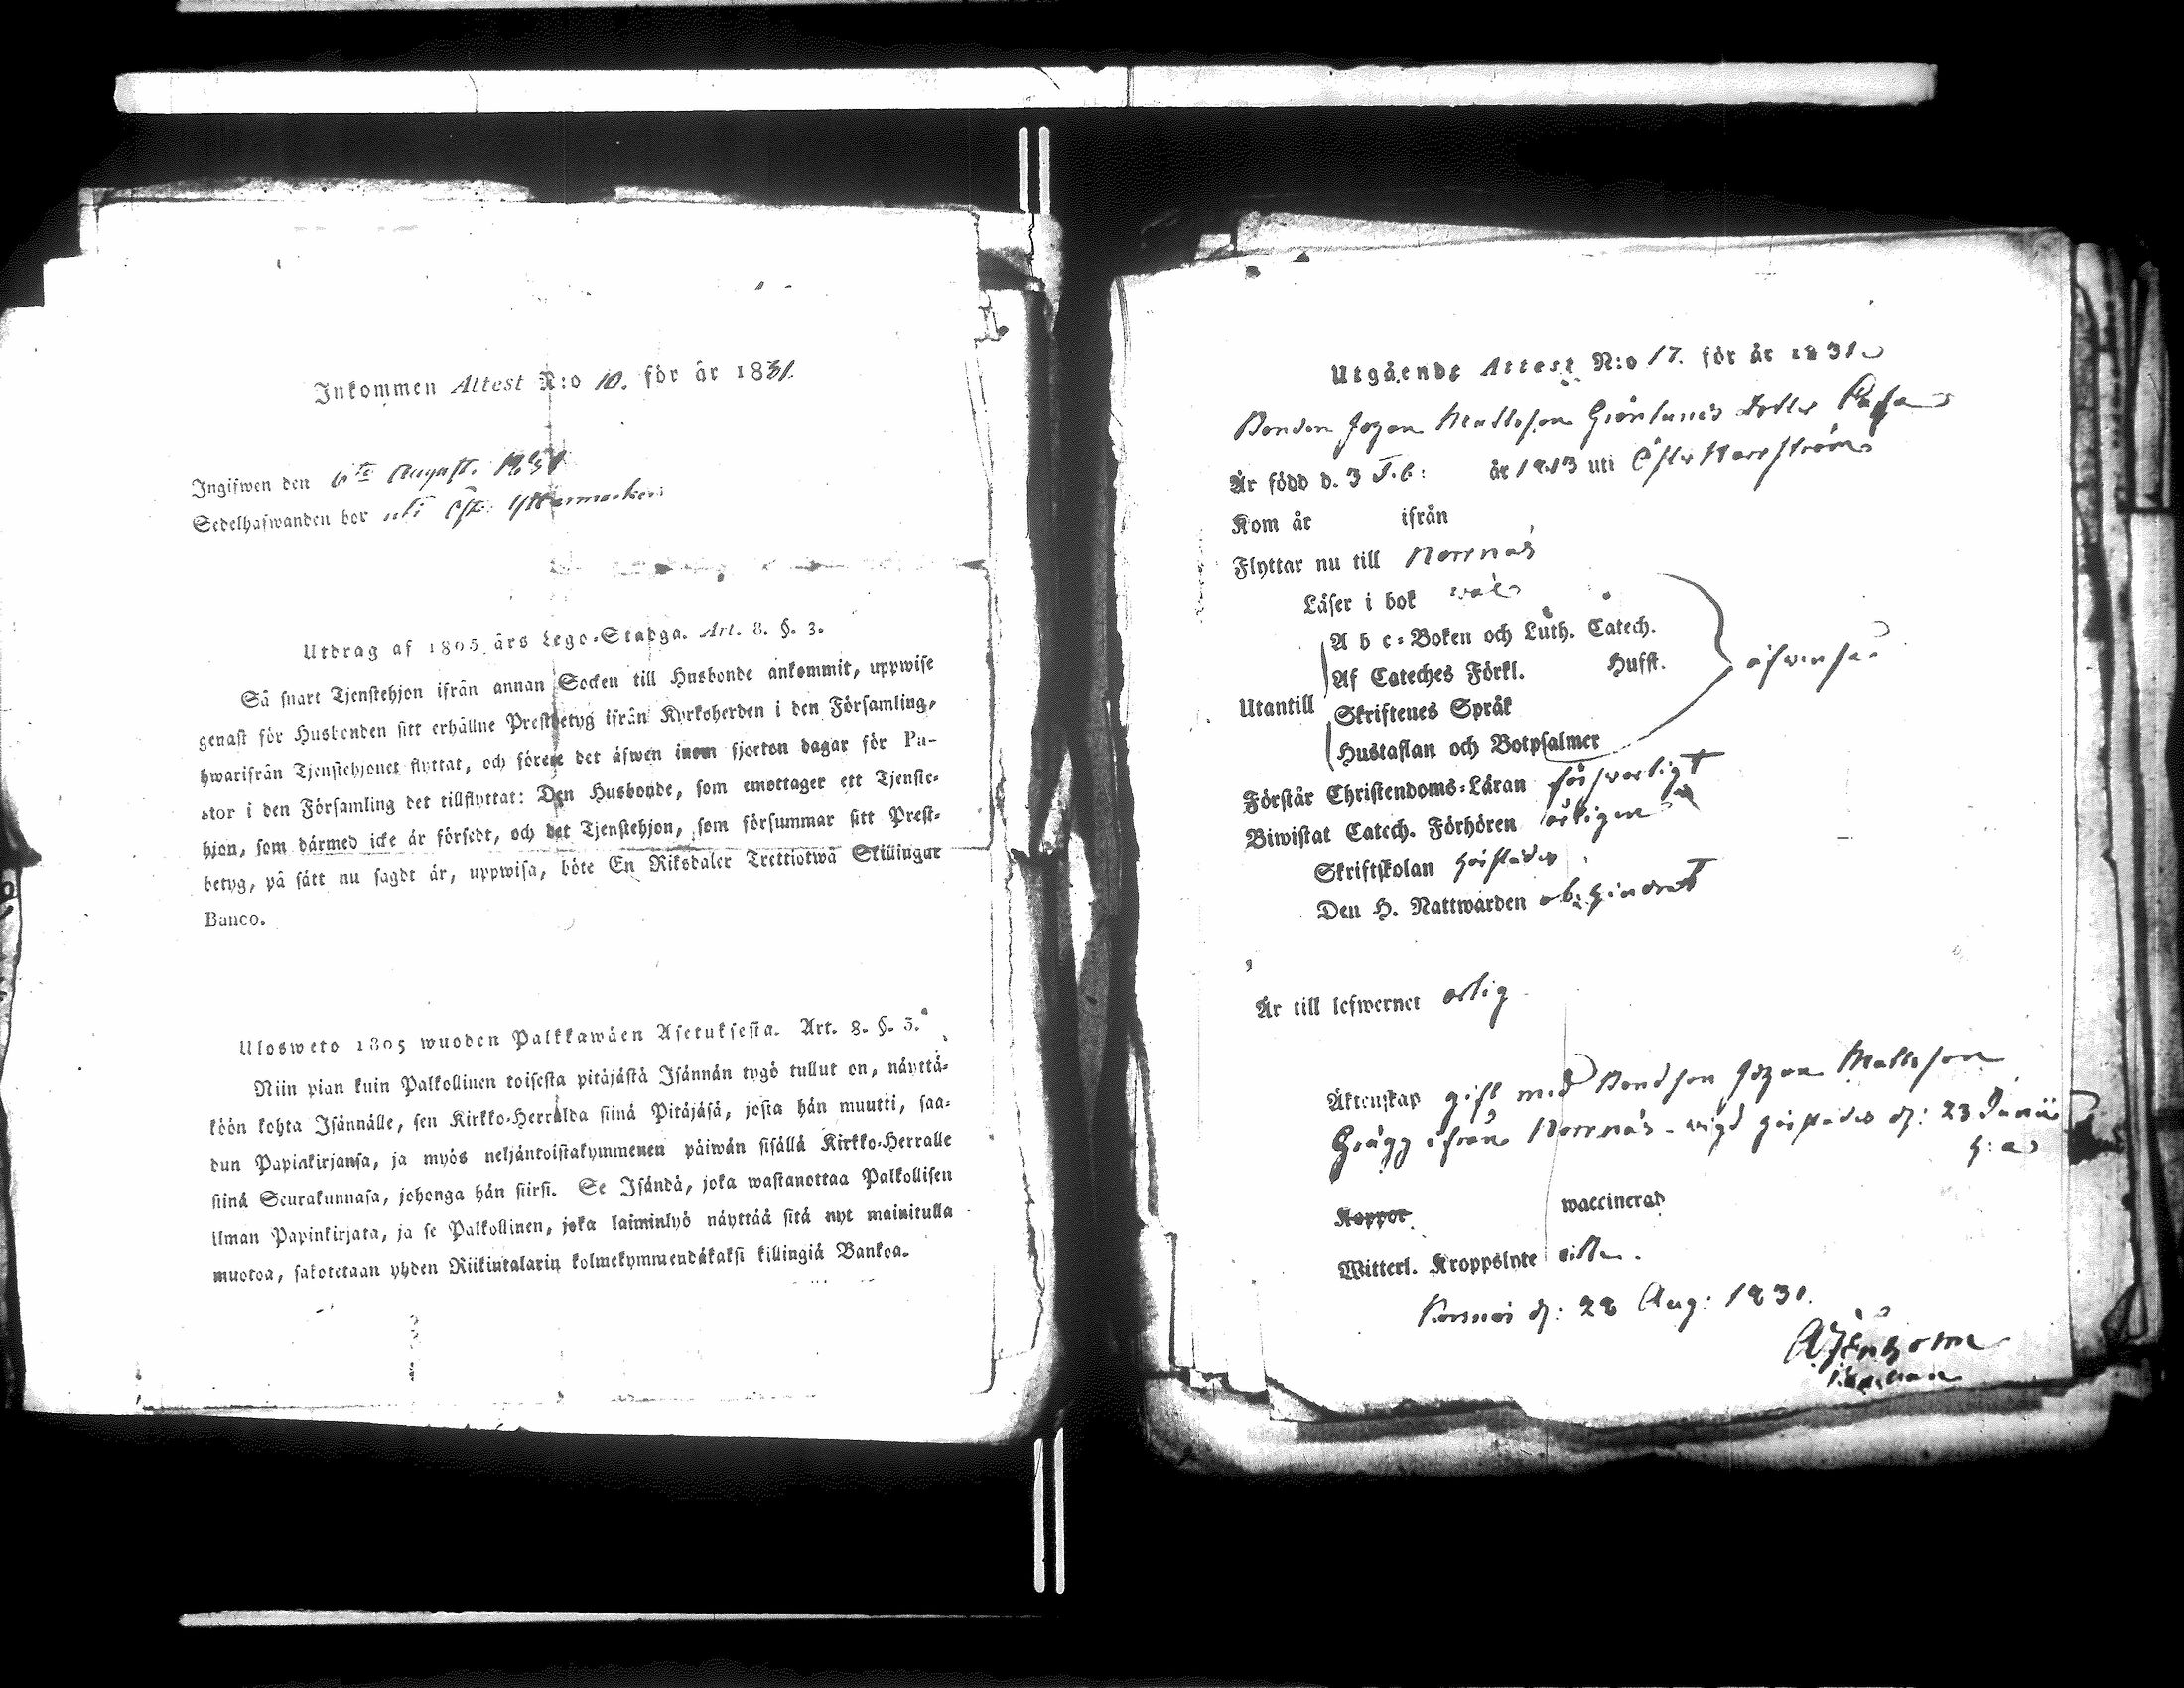 Inkommen Attest N:o 10. för år 1831.
Ingifwen den 6te August. 1831
Sedelhafwanden bor uti Öfre Yttermarken
Utdrag af 1805 års Lego-Stadga. Art. 8. §. 3.
Så snart Tjenstehjon ifrån annan Socken till Husbonde ankommit, uppwise
genast för Husbonden sitt erhållne Prestbetyg ifrån Kyrkoherden i den Församling,
hwarifrån Tjenstehjonet flyttat, och förete det äfwen inom fjorton dagar för Pa-
stor i den Församling det tillflyttat: Den Husbonde, som emottager ett Tjenste-
hjon, som därmed icke är försedt, och det Tjenstehjon, som försummar sitt Prest-
betyg, på sätt nu sagdt är, uppwisa, böte En Riksdaler Trettiotwå Skillingar
Banco.
Ulosweto 1805 wuoden Palkkawäen Asetuksesta. Art. 8. §. 3.
Niin pian kuin Palkollinen toisesta pitäjästä Isännän tygö tullut on, näyttä-
köön kohta Isännälle, sen Kirkko-Herralda siinä Pitäjäsä, josta hän muutti, saa-
dun Papinkirjansa, ja myös neljäntoistakymmenen päiwän sisällä Kirkko-Herralle
siinä Seurakunnasa, johonga hän siirsi. Se Isändä, joka wastanottaa Palkollisen
ilman Papinkirjata, ja se Palkollinen, joka laiminlyö näyttää sitä nyt mainitulla
muotoa, sakotetaan yhden Riikintalarin kolmekymmendäkaksi killingiä Bankoa.
Utgående Attest N:o 17. för år 1831
Bonden Johan Mattsson Grönlunds Dotter Caisa
Är född d. 3 Feb: år 1813 uti Öfre Harrström
Kom år ifrån
Flyttar nu till Norrnäs
Läser i bok wäl
A b c-Boken och Luth. Catech.
Af Cateches Förkl. Husst.
Utantill
Skriftenes Språk
Hustaflan och Botpsalmer
äfwenså
Förstår Christendoms-Läran förswarligt
Biwistat Catech. Förhören årligen
Skriftskolan härstädes
Den H. Nattwarden obehindrat
Är till lefwernet ärlig
Äktenskap gift med Bondson Johan Mattsson
Grägg ifrån Norrnäs - wigd härstädes d: 23 Junii
h: a
Koppor waccinerad
Witterl. Kroppslyte intet.
Korsnäs d: 28 Aug: 1831.